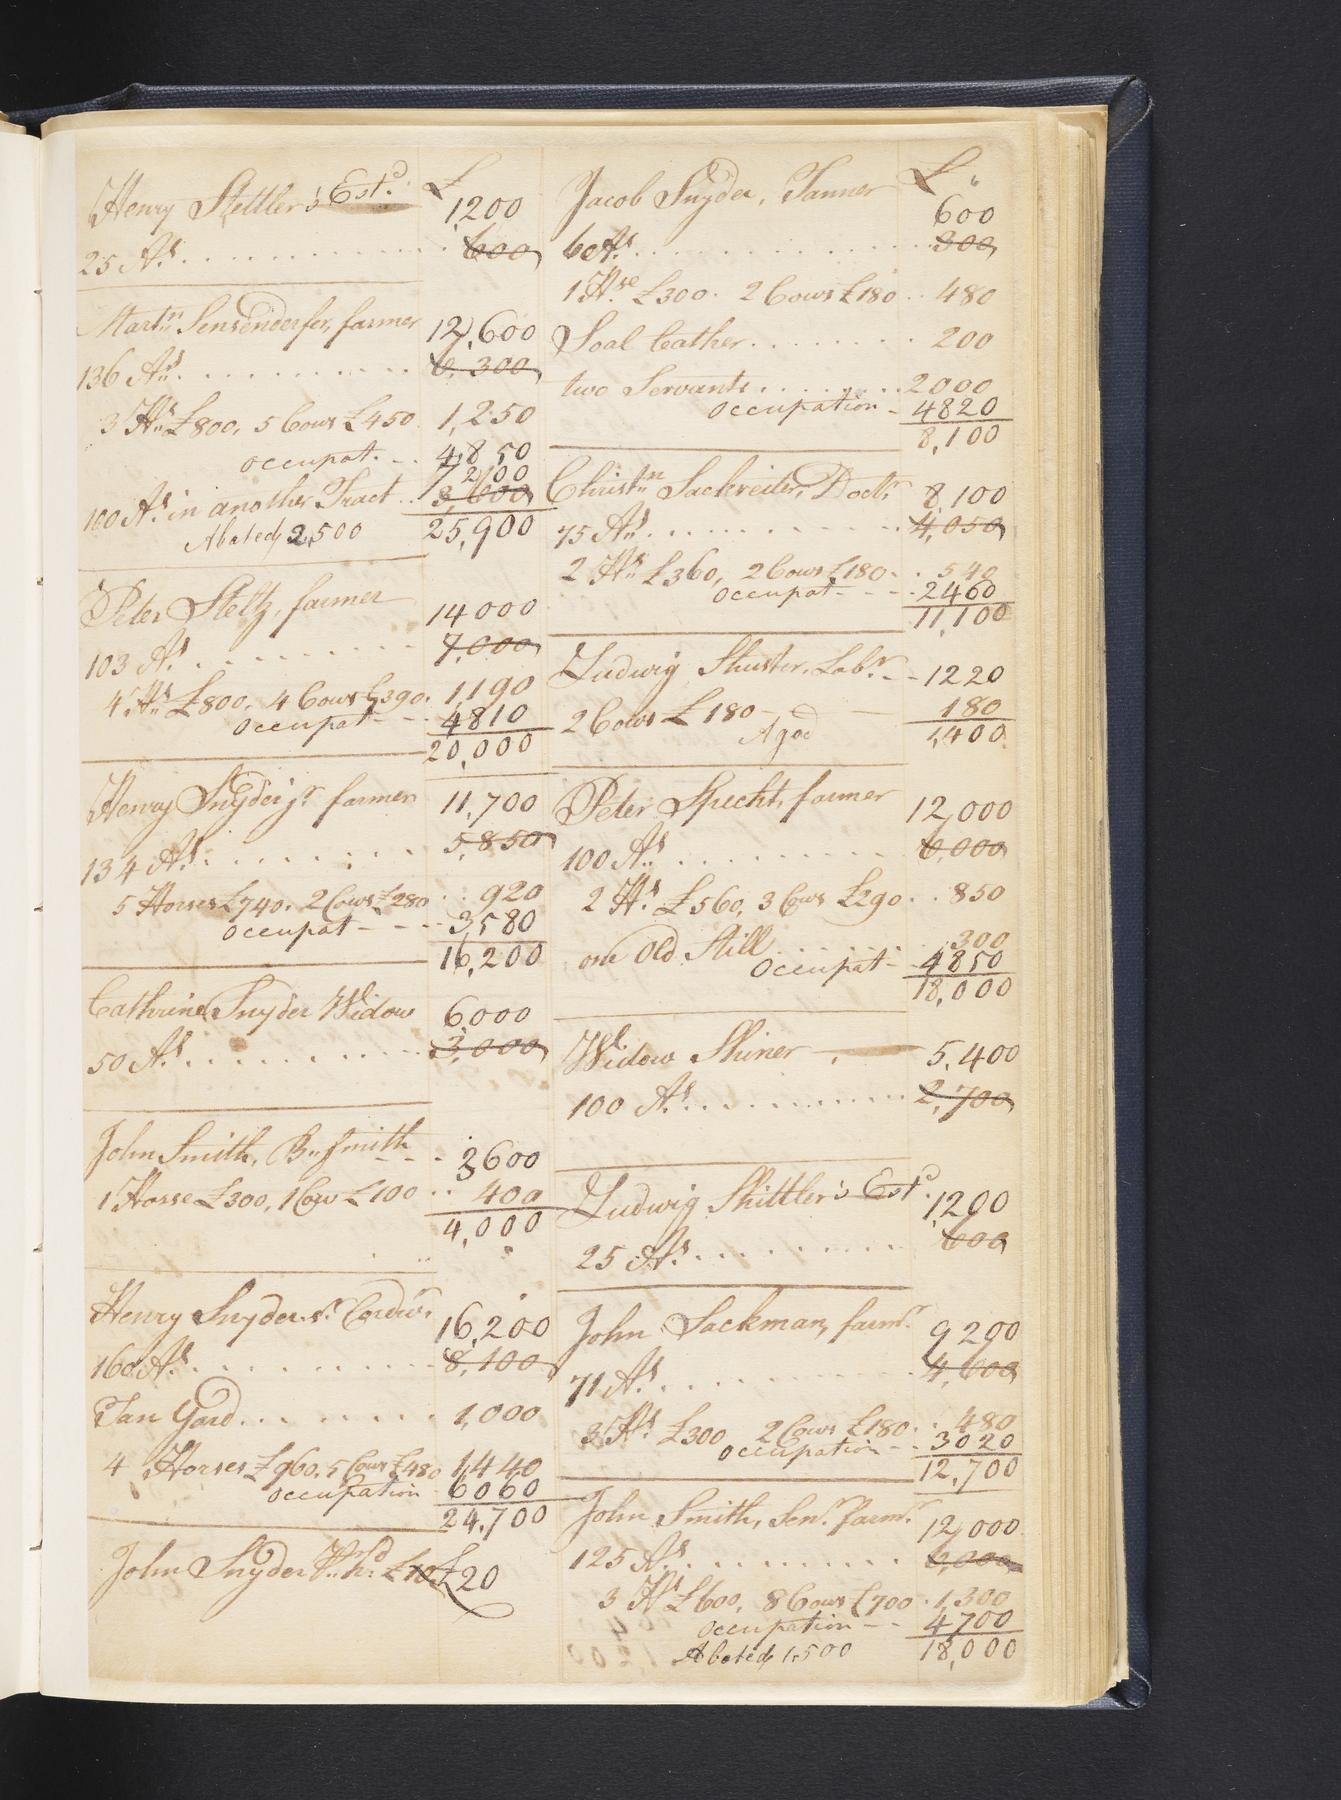 Henry Stettler's Est.d £ 1200
25 As. . . . . . . . . . . . 600
Mart.n Sensenderfer, farmer 12,600
136 As. . . . . . . . . . . . 6,300
3 Hs. £800, 5 Cows £450 1,250
occupat. - . 4,850
7200
100 As. in another Tract . . 3,600
Abated, 2,500 25,900
Peter Steltz, farmer 14000
103 As. . . . . . . . . . 7,000
4 Hs. £800, 4 Cows £390. 1,190
occupat - - . 4810
20,000
Henry Snyder jr. farmer 11,700
134 As. . . . . . . . . 5,850
5 Horses £740. 2 Cows £280 . . 920
occupat - - - 3,580
16,200
Cathrine Snyder Widow 6,000
50 As. . . . . . . . . . . . 3,000
John Smith, B. Smith - - - 3600
1 Horse £300, 1 Cow £100 . . 400
4,000
Henry Snyder sr. Cordwr. 16,200
160 As. . . . . . . . . . . . 8,100
Tan Yard . . . . . . . . . 1,000
4 Horses £960, 5 Cows £480 1,440
occupation 6060
24,700
John Snyder £10 £20
Jacob Snyder, Tanner £
600
6 As. . . . . . . . . . . . . . 300
1 Hse £300. 2 Cows £180 . . 480
Soal Leather . . . . . . . . 200
two Servants . . . . . . . . 2000
occupation - 4820
8,100
Christn. Sackreiter, Doctr. 8,100
75 As. . . . . . . . . . . . . 4,050
2 Hs. £360, 2 Cows £180 - . 540
occupat - - - . 2460
11,100
Ludwig Shuster, Labr. - - 1220
2 Cows £180 - 180
Aged 1,400
Peter Specht, farmer 12,000
100 As. . . . . . . . . . . . 6,000
2 Hs. £560, 3 Cows £290 . . 850
one Old Still . . . . . . . 300
Occupat - 4850
18,000
Widow Shiner 5,400
100 As. . . . . . . . . . . . 2,700
Ludwig Shittler's Est.d 1,200
25 As. . . . . . . . . . . 600
John Sackman, farmr. 9200
71 As. . . . . . . . . . . . 4,600
3 Hs. £300 2 Cows £180 . . 480
occupation - - . 3020
12,700
John Smith, Senr. farmr. 12,000
125 As. . . . . . . . . . . 6,000
3 Hs. £600, 8 Cows £700 . 1,300
occupation - - 4700
Abated, 1,500 18,000